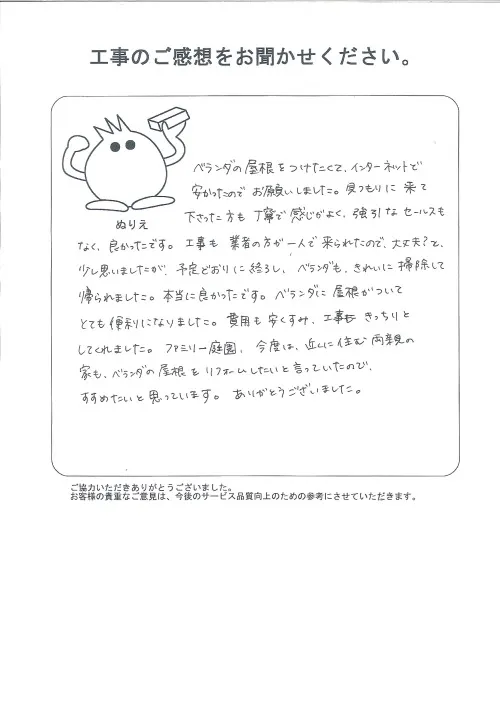 工事のご感想をお聞かせください。
ベランダの屋根をつけたくて、インターネットで
安かったので お願いしました。見つもりに 来て
下さった方も 丁寧で 感じがよく、強引な セールスも
ぬりえ
なく、良かったです。工事も 業者の方が一人で 来られたので、大丈夫?と、
少し思いましたが、予定どおりに 終るし、ベランダも、きれいに 掃除して
帰られました。本当に良かったです。ベランダに 屋根がついて
とても 便利になりました。費用も 安くすみ、工事も きっちりと
してくれました。ファミリー庭園、今度は、近くに住む 両親の
家も、ベランダの屋根を リフォームしたいと言っていたので、
すすめたいと思っています。 ありがとうございました。
ご協力いただきありがとうございました。
お客様の貴重なご意見は、今後のサービス品質向上のための参考にさせていただきます。